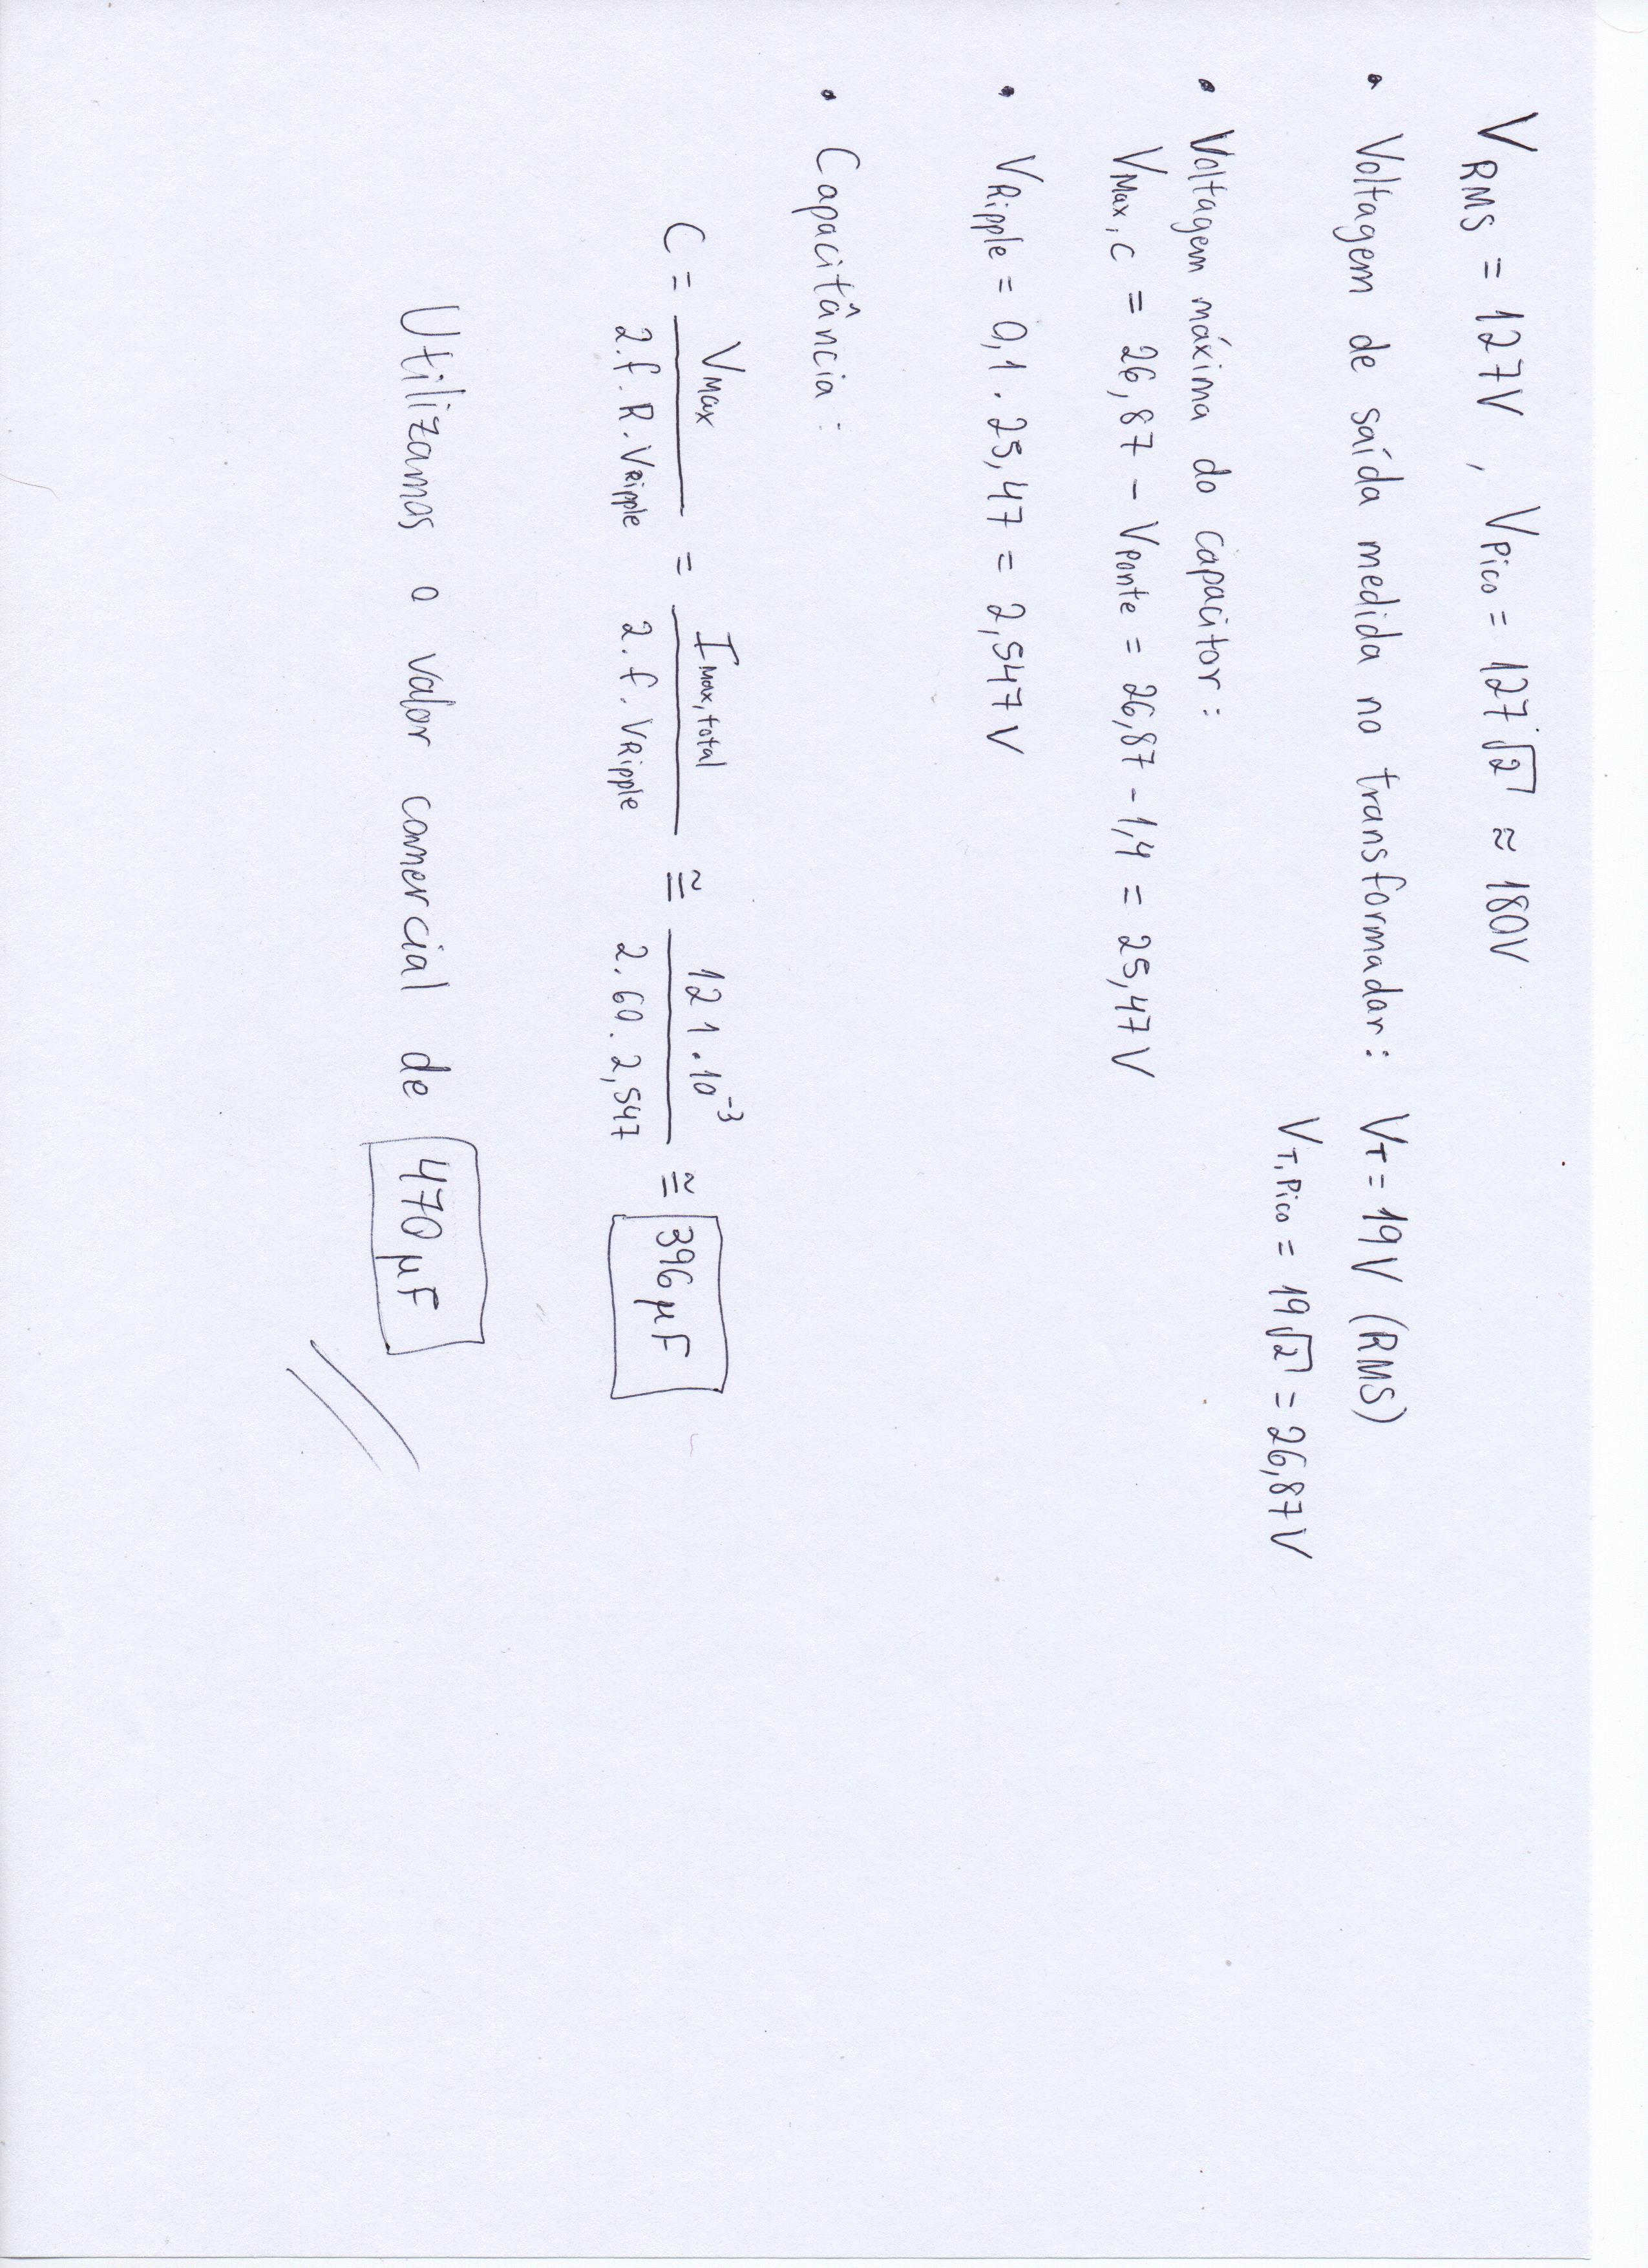 V_RMS = 127V , V_Pico = 127√2 ≈ 180V
• Voltagem de saída medida no transformador: V_T = 19V (RMS)
V_T,Pico = 19√2 = 26,87V
• Voltagem máxima do capacitor:
V_Max,C = 26,87 - V_Ponte = 26,87 - 1,4 = 25,47V
• V_Ripple = 0,1 . 25,47 = 2,547V
• Capacitância:
C = V_Max / 2.f.R.V_Ripple = I_Max,total / 2.f.V_Ripple ≅ 121.10^-3 / 2.60.2,547 ≅ 396μF
Utilizamos o valor comercial de 470μF